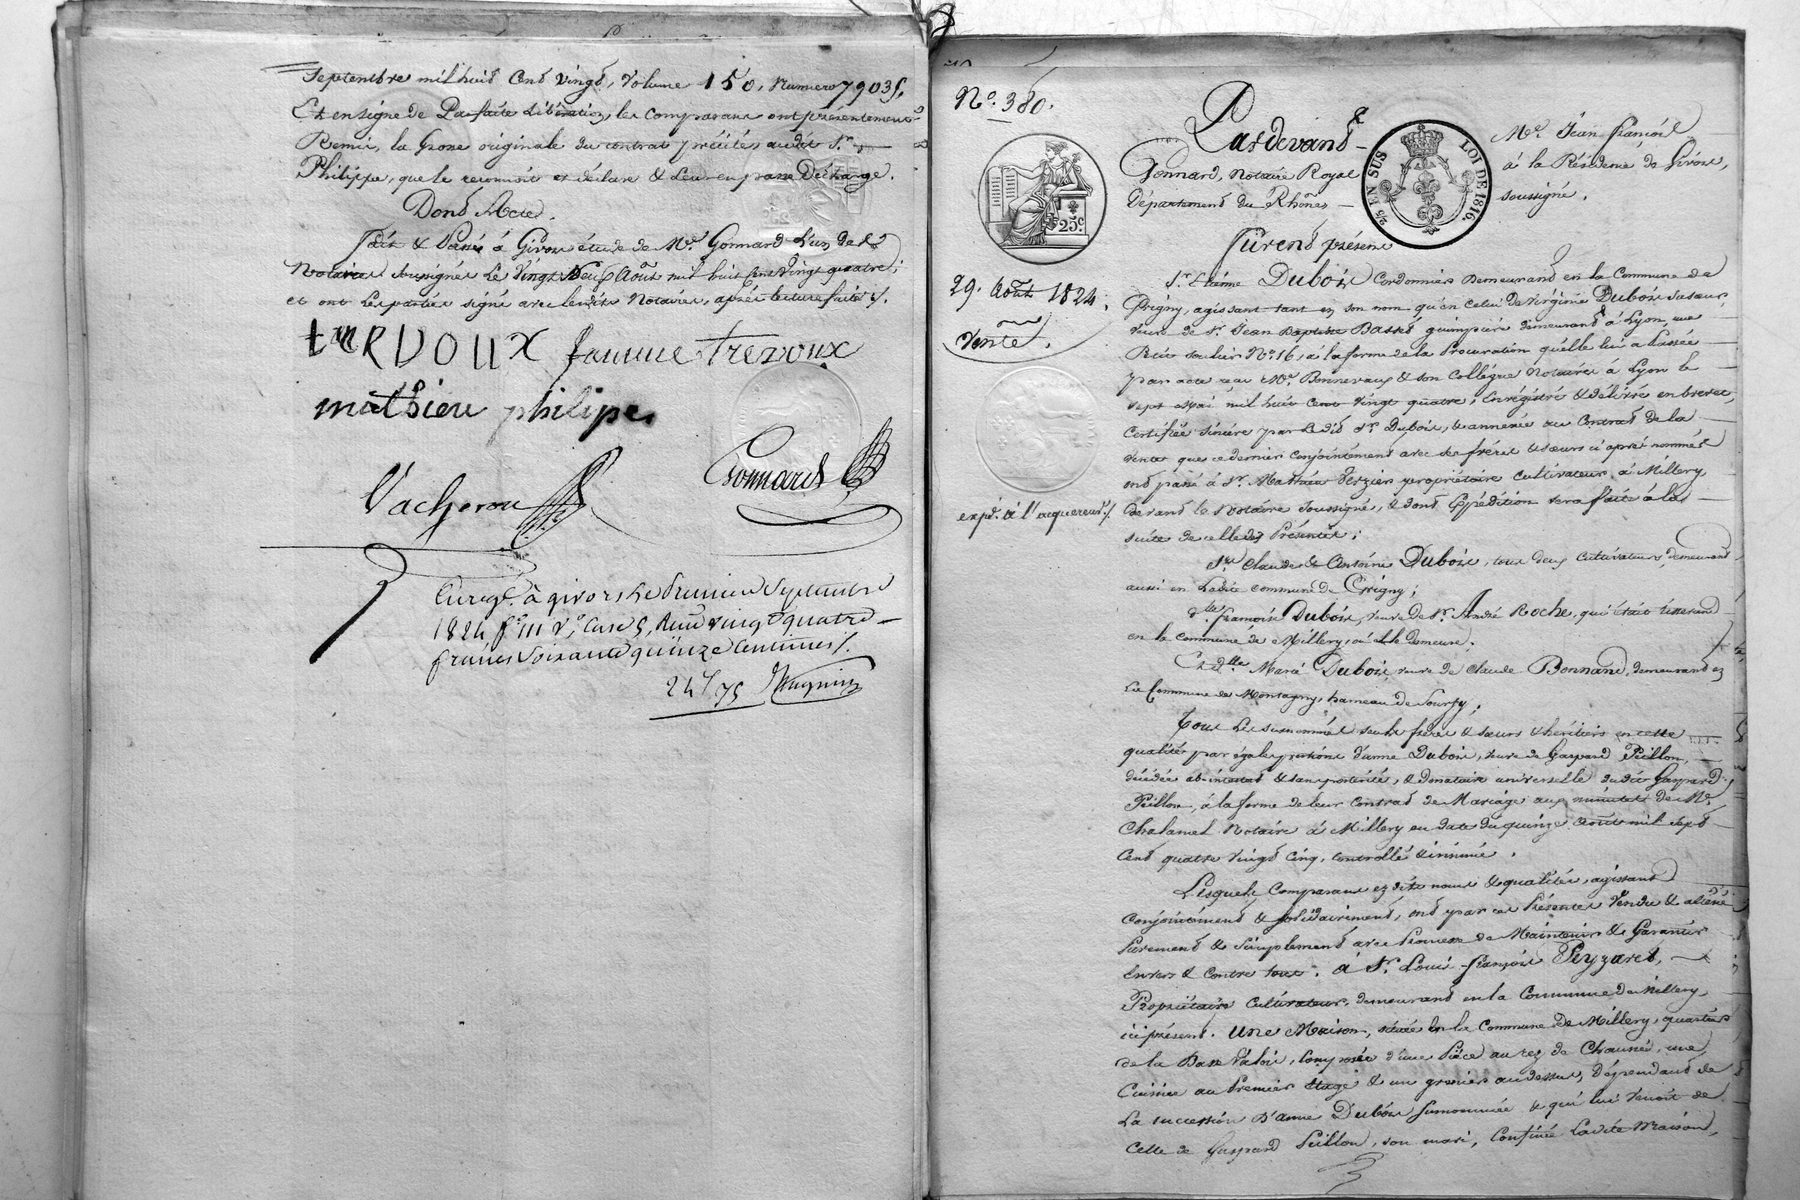 Septembre mil huit Cent Vingt, Volume 150, Numero 79035,
Et en signe de Parfaite Libération, les Comparans ont présentement
Remis, la Grosse originale du contrat précité audit Sr
Philippe, que le reconnoit et déclare & Leur en passe Décharge.
Dont Acte.
fait & Passé à Givors étude de Me Gonnard L'un des
Notaires soussignés Le Vingt Neuf Août mil huit Cent Vingt quatre;
et ont les parties signé avec lesdits Notaires, après lecture faite ./.
femme trevoux
mathieu philipe
Vacheron
Gonnard
Enregt. à givors Le Premier Septembre
1824 fo 111 Vo, Case 5, Reçu vingt quatre
francs soixante quinze Centimes ./.
24f 75
No. 380.
Pardevant Me. Jean françois
Gonnard, Notaire Royal à la Résidence de Givors,
Département du Rhône soussigné,
25 EN SUS
LOI DE 1816.
25c.
furent présens
29. Août 1824.
Vente.
Sr. Etienne Dubois Cordonnier Demeurant en la Commune de
Grigny, agissant tant en son nom qu'en celui de Virginie Dubois sa sœur,
veuve de Sr. Jean Baptiste Basset, demeurant à Lyon, rue
No. 16, à la forme de la Procuration qu'elle lui a Passée
par acte reçu Me. Bonnevaux & son Collègue Notaires à Lyon le
sept Mai mil huit Cent Vingt quatre, Enrégistré & délivré en brevet,
Certifiée sincère par Ledit Sr. Dubois, & annexée au Contrat de la
Vente que ce dernier conjointement avec ses frères & sœurs ci après nommés
ont passé à Sr. Mathieu Verzier propriétaire cultivateur à Millery
devant le Notaire Soussigné, & dont Expédition sera faite à la
suite de celle des Présentes;
expd. à l'acquereur ./.
Srs Claude & Antoine Dubois, tous deux Cultivateurs, demeurant
aussi en Ladite commune de Grigny;
Dlle françoise Dubois, veuve de Sr. André Roche, qui étoit tisserand
en la commune de Millery, où elle demeure;
Et Dlle Marie Dubois, veuve de Claude Bonnand, demeurant en
La Commune de Montagny, hameau de Sourzy;
Tous Les susnommés seuls frères & sœurs & héritiers en cette
qualité par égales portions d'anne Dubois, veuve de Gaspard Peillon,
décédée ab-intestat & sans postérité, & donataire universelle dudit Gaspard
Peillon, à la forme de leur Contrat de Mariage aux minutes de Me.
Chalamel Notaire à Millery en date du quinze Août mil sept
Cent quatre Vingt Cinq, controllé & insinué.
Lesquels Comparans ez dits noms & qualités, agissant
Conjointement & solidairement, ont par ces Présentes Vendu & aliéné
Purement & Simplement avec Promesse de Maintenir & Garantir
Envers & Contre tous. à Sr. Louis françois Peyzaret,
Propriétaire Cultivateur, demeurant en la Commune de Millery
ici présent. Une Maison, située En la Commune de Millery, quartier
de la Basse Valois, Composée d'une Pièce au rez de Chaussée, une
Cuisine au Premier étage & un grenier au dessus, dépendant de
La succession d'anne Dubois susnommée & qui lui Venoit de
Celle de Gaspard Peillon, son mari, Confinée Ladite Maison,